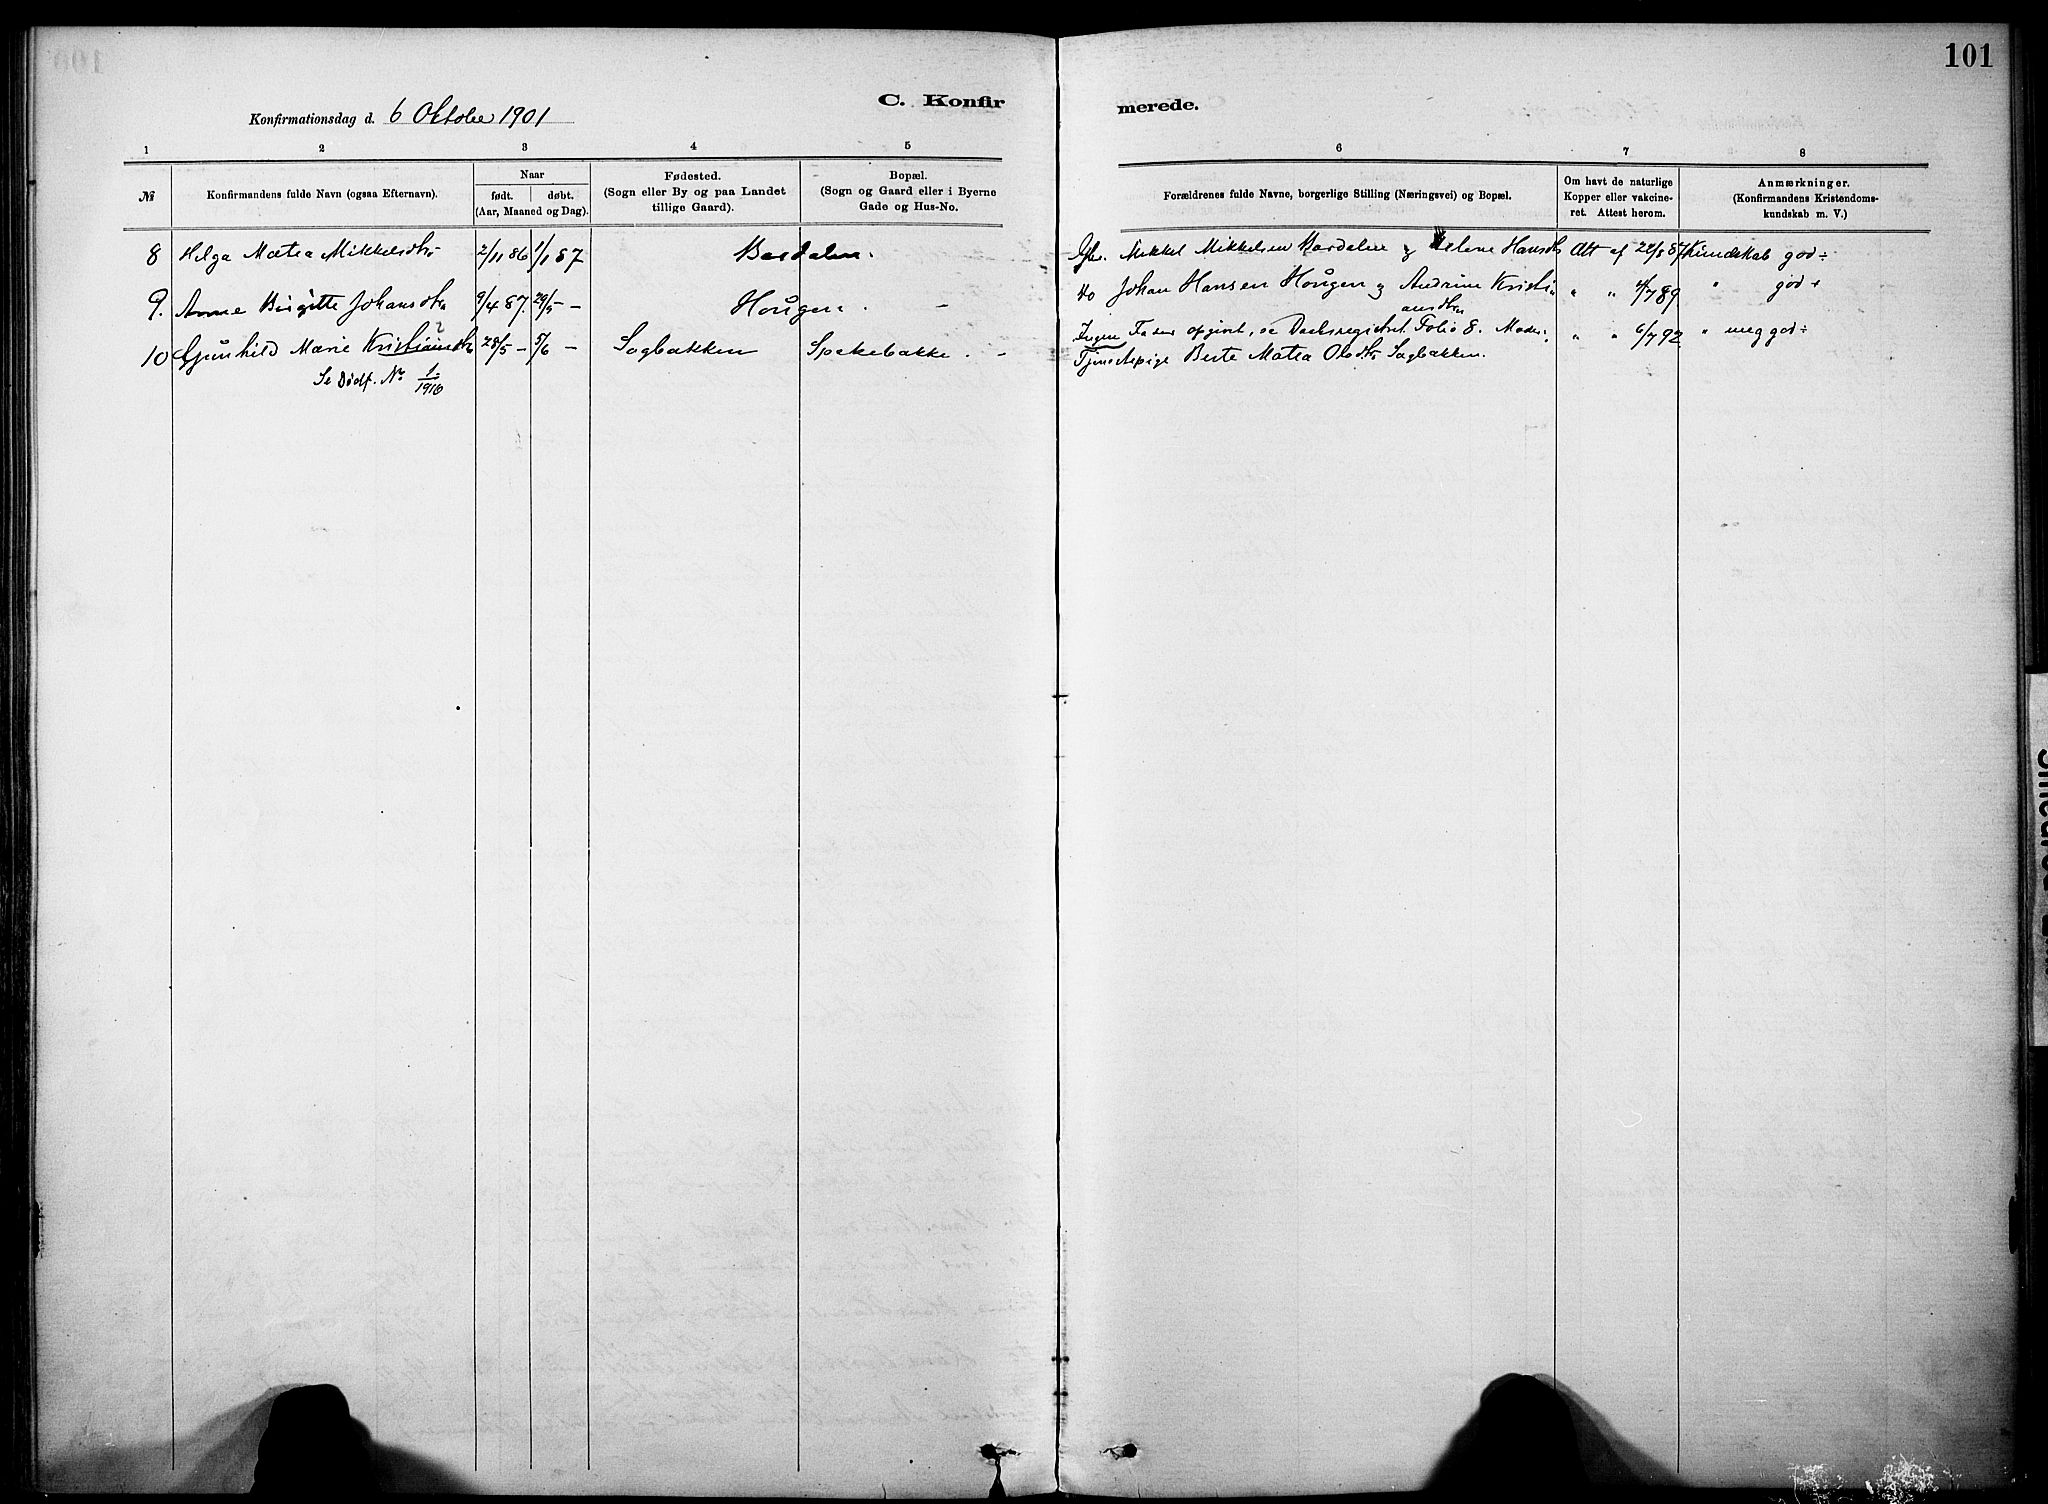 101
C. Konfir
merede.
Konfirmationsdag d. 6 Oktober 1901
1 2 3 4 5 6 7 8
№ Konfirmandens fulde Navn (ogsaa Efternavn). Naar
født. døbt.
(Aar, Maaned og Dag).
Fødested.
(Sogn eller By og paa Landet
tillige Gaard).
Bopæl.
(Sogn og Gaard eller i Byerne
Gade og Hus-No.
Forældrenes fulde Navne, borgerlige Stilling (Næringsvei) og Bopæl.
Om havt de naturlige
Kopper eller vakcine-
ret. Attest herom.
Anmærkninger.
(Konfirmandens Kristendoms-
kundskab m. V.)
8 Helga Matea Mikkelsdtr 2/11 86 1/1 87 Bardalen. Mikkel Mikkelsen Bardalen og Helene Hansdtr Att af 22/8 87 Kundskab god ÷
9. Anne Birgitte Johansdtr 9/4 87. 29/5 – Hougen. – Do Johan Hansen Hougen og Andrine Kristi
ansdtr " " 4/7 89 " god +
10 Gunhild Marie Kristiansdtr ? 28/5 – 5/6 – Sagbakken Spakebakke. – Ingen Fader opgivet, se Daabsregistret Folio 8. Moder: " " 6/7 92 " meg god ÷
Tjenestepige Berte Matea Olsdtr Sagbakken.
Se Dødf. No 1/1916